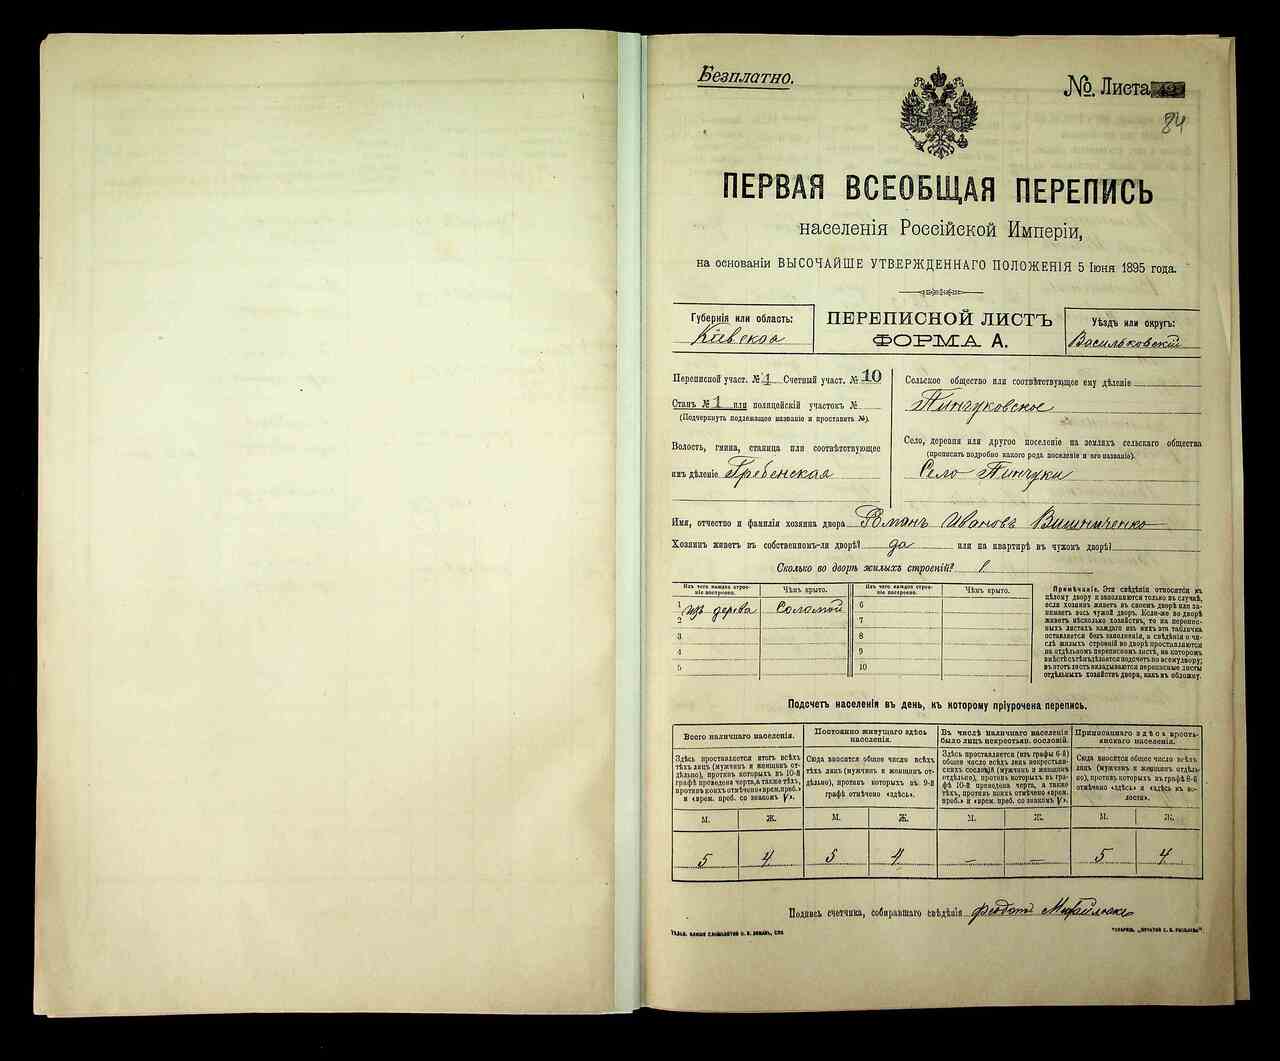 Безплатно.
№ Листа
84
ПЕРВАЯ ВСЕОБЩАЯ ПЕРЕПИСЬ
населенія Россійской Имперіи,
на основаніи ВЫСОЧАЙШЕ УТВЕРЖДЕННАГО ПОЛОЖЕНІЯ 5 Іюня 1895 года.
Губернія или область:
Кіевская
ПЕРЕПИСНОЙ ЛИСТЪ
ФОРМА А.
Уѣздъ или округъ:
Васильковскій
Переписной участ. № 1 Счетный участ. № 10
Станъ № 1 или полицейскій участокъ №
(Подчеркнуть подлежащее названіе и проставить №).
Волость, гмина, станица или соотвѣтствующее
имъ дѣленіе Гребенская
Сельское общество или соотвѣтствующее ему дѣленіе
Пинчуковское
Село, деревня или другое поселеніе на земляхъ сельскаго общества
(прописать подробно какого рода поселеніе и его названіе).
Село Пинчуки
Имя, отчество и фамилія хозяина двора Романъ Ивановъ Винниченко
Хозяинъ живетъ въ собственномъ-ли дворѣ? да или на квартирѣ въ чужомъ дворѣ?
Сколько во дворѣ жилыхъ строеній? 1
Изъ чего каждое строе-
ніе построено.
Чѣмъ крыто.
Изъ чего каждое строе-
ніе построено.
Чѣмъ крыто.
1 изъ дерева Соломой 6
2 7
3 8
4 9
5 10
Примѣчаніе. Эти свѣдѣнія относятся къ
цѣлому двору и заполняются только въ случаѣ,
если хозяинъ живетъ въ своемъ дворѣ или за-
нимаетъ весь чужой дворъ. Если-же во дворѣ
живетъ нѣсколько хозяйствъ, то на перепис-
ныхъ листахъ каждаго изъ нихъ эта табличка
оставляется безъ заполненія, а свѣдѣнія о чи-
слѣ жилыхъ строеній во дворѣ проставляются
на отдѣльномъ переписномъ листѣ, на которомъ
вмѣстѣ съ тѣмъ дѣлается подсчетъ по всему двору;
въ этотъ листъ вкладываются переписные листы
отдѣльныхъ хозяйствъ двора, какъ въ обложку.
Подсчетъ населенія въ день, къ которому пріурочена перепись.
Всего наличнаго населенія.
Постоянно живущаго здѣсь
населенія.
Въ числѣ наличнаго населенія
было лицъ некрестьян. сословій.
Приписаннаго здѣсь кресть-
янскаго населенія.
Здѣсь проставляется итогъ всѣхъ
тѣхъ лицъ (мужчинъ и женщинъ от-
дѣльно), противъ которыхъ въ 10-й
графѣ проведена черта, а также тѣхъ,
противъ коихъ отмѣчено «врем. преб.»
и «врем. преб. со знакомъ V».
Сюда вносится общее число всѣхъ
тѣхъ лицъ (мужчинъ и женщинъ от-
дѣльно), противъ которыхъ въ 9-й
графѣ отмѣчено «здѣсь».
Здѣсь проставляется (изъ графы 6-й)
общее число всѣхъ лицъ некрестьян-
скихъ сословій (мужчинъ и женщинъ
отдѣльно), противъ которыхъ въ гра-
фѣ 10-й проведена черта, а также
тѣхъ, противъ коихъ отмѣчено «врем.
преб.» и «врем. преб. со знакомъ V».
Сюда вносится общее число всѣхъ
тѣхъ лицъ (мужчинъ и женщинъ отдѣль-
но), противъ которыхъ въ графѣ 8-й
отмѣчено «здѣсь» и «здѣсь въ во-
лости».
М. Ж. М. Ж. М. Ж. М. Ж.
5 4 5 4 — — 5 4
Подпись счетчика, собиравшаго свѣдѣнія Феодотъ